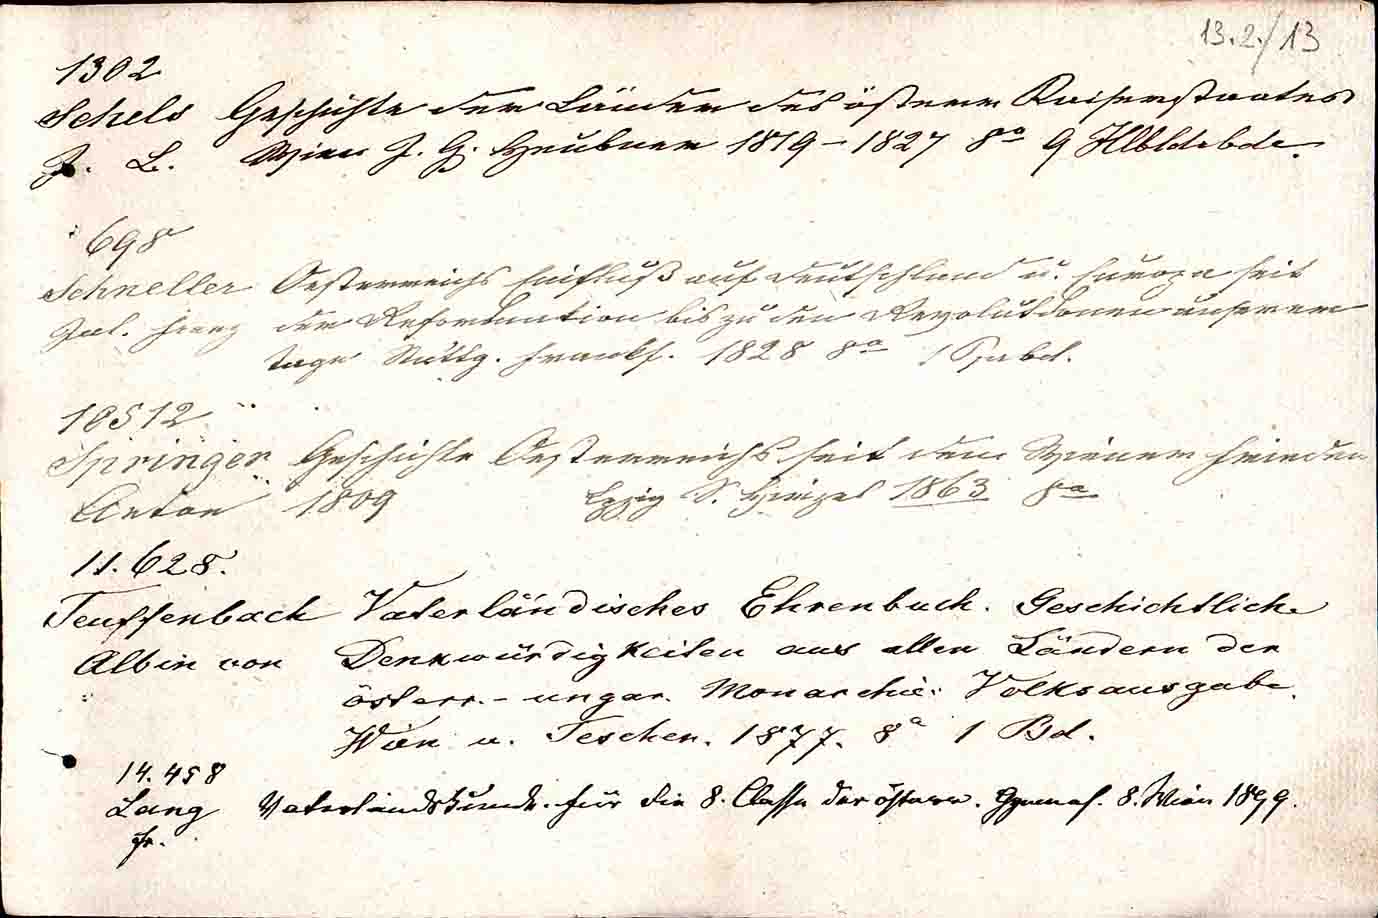 13.2./13
1302
Schels Geschichte der Länder des österr Kaiserstaates
J. B. Wien J. G. Heubner 1819-1827 8° 9 Hlbldrbde.
698
Schneller Oesterreichs Einfluß auf Deutschland u. Europa seit
Jul. Franz der Reformation bis zu den Revolutionen unserer
Tage Stuttg. Frankf. 1828 8° 1 Ppbd.
10512
Springer Geschichte Oesterreichs seit dem Wiener Frieden
Anton 1809 Lpzig S. Hirzel 1863 8°
11.628.
Teuffenbach Vaterländisches Ehrenbuch. Geschichtliche
Albin von Denkwürdigkeiten aus allen Ländern der
österr.-ungar. Monarchie. Volksausgabe.
Wien u. Teschen. 1877. 8° 1 Bd.
14.458
Lang Vaterlandskunde für die 8. Classe der österr. Gymnas. 8. Wien 1899.
Fr.